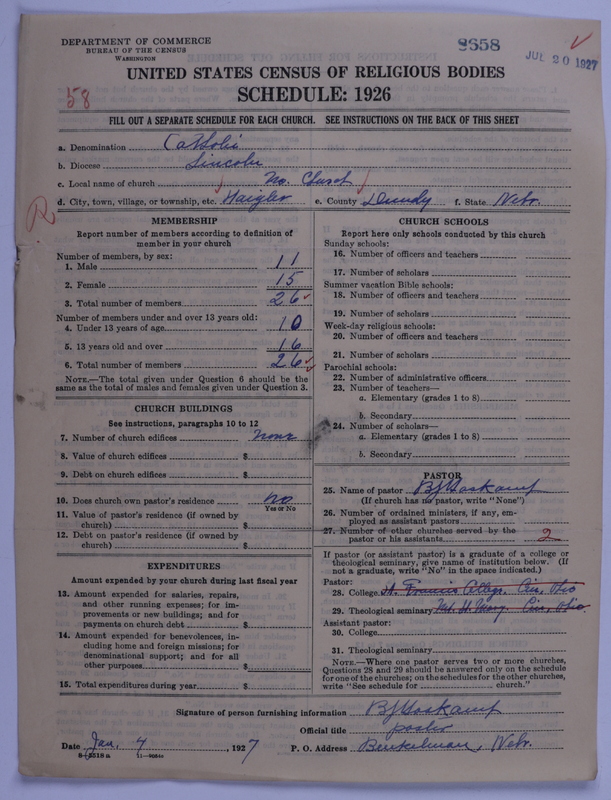 DEPARTMENT OF COMMERCE
BUREAU OF THE CENSUS
WASHINGTON
8658
JUL 20 1927
58
UNITED STATES CENSUS OF RELIGIOUS BODIES
SCHEDULE: 1926
FILL OUT A SEPARATE SCHEDULE FOR EACH CHURCH. SEE INSTRUCTIONS ON THE BACK OF THIS SHEET
a. Denomination Catholic
b. Diocese Lincoln
c. Local name of church No. Church
d. City, town, village, or township, etc. Haigler e. County Dundy f. State Nebr.
R
MEMBERSHIP
Report number of members according to definition of
member in your church
Number of members, by sex:
1. Male 11
2. Female 15
3. Total number of members 26
Number of members under and over 13 years old:
4. Under 13 years of age 10
5. 13 years old and over 16
6. Total number of members 26
NOTE.—The total given under Question 6 should be the
same as the total of males and females given under Question 3.
CHURCH BUILDINGS
See instructions, paragraphs 10 to 12
7. Number of church edifices none
8. Value of church edifices $
9. Debt on church edifices $
10. Does church own pastor's residence no
Yes or No
11. Value of pastor's residence (if owned by
church) $
12. Debt on pastor's residence (if owned by
church) $
EXPENDITURES
Amount expended by your church during last fiscal year
13. Amount expended for salaries, repairs,
and other running expenses; for im-
provements or new buildings; and for
payments on church debt $
14. Amount expended for benevolences, in-
cluding home and foreign missions; for
denominational support; and for all
other purposes $
15. Total expenditures during year $
CHURCH SCHOOLS
Report here only schools conducted by this church
Sunday schools:
16. Number of officers and teachers
17. Number of scholars
Summer vacation Bible schools:
18. Number of officers and teachers
19. Number of scholars
Week-day religious schools:
20. Number of officers and teachers
21. Number of scholars
Parochial schools:
22. Number of administrative officers
23. Number of teachers—
a. Elementary (grades 1 to 8)
b. Secondary
24. Number of scholars—
a. Elementary (grades 1 to 8)
b. Secondary
PASTOR
25. Name of pastor BJ Hoskamp
(If church has no pastor, write "None")
26. Number of ordained ministers, if any, em-
ployed as assistant pastors
27. Number of other churches served by the
pastor or his assistants 2
If pastor (or assistant pastor) is a graduate of a college or
theological seminary, give name of institution below. (If
not a graduate, write "No" in the space indicated.)
Pastor:
28. College St. Francis College. Cin, Ohio
29. Theological seminary Mt. St. Mary. Cin, Ohio.
Assistant pastor:
30. College
31. Theological seminary
NOTE.—Where one pastor serves two or more churches,
Questions 28 and 29 should be answered only on the schedule
for one of the churches; on the schedules for the other churches,
write "See schedule for church."
Signature of person furnishing information BJ Hoskamp
Official title pastor
Date Jan. 4, 1927 P. O. Address Benkelman, Nebr.
8-5518 a